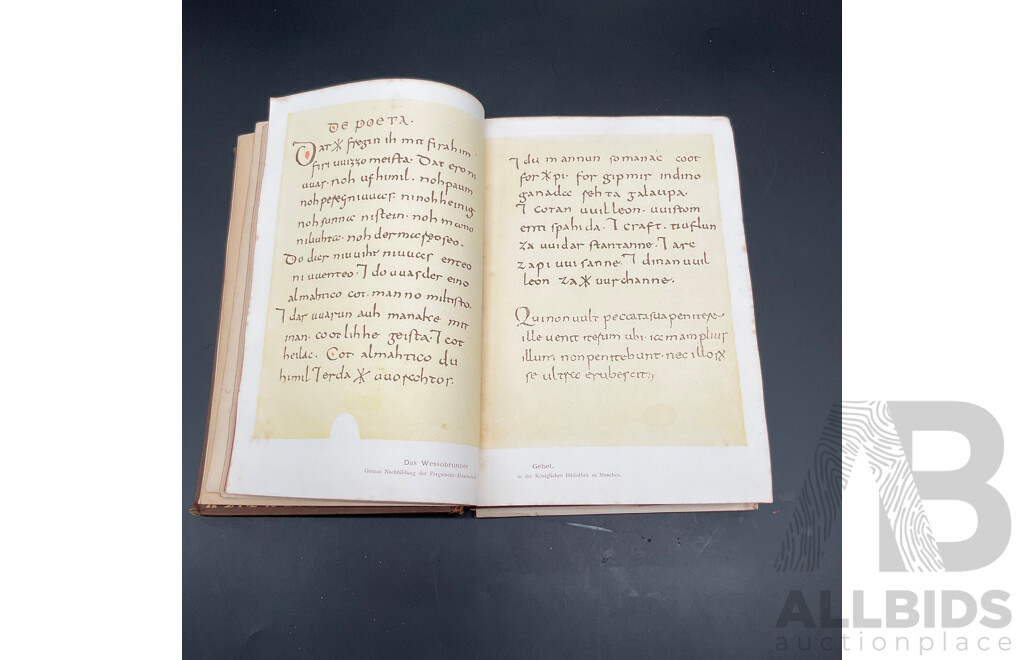 De poeta.
Dat * fregin ih mit firahim
firi uuizzo meista. Dat ero ni
uuas. noh ufhimil. noh paum
noh pereg ni uuas. ninohheinig
noh sunna nistein. noh mano
niliuhta. noh der mareoseo.
Do dar niuuiht niuuas enteo
ni uuenteo. ⁊ do uuas der eino
almahtico cot. manno miltisto.
⁊ dar uuarun auh manake mit
inan. cootlihhe geista. ⁊ cot
heilac. Cot almahtico du
himil ⁊ erda * uuorahtos.
⁊ du mannun somanac coot
for * pi. for gipmir indino
ganada rehta galaupa.
⁊ cotan uuilleon. uuistom
enti spahida. ⁊ craft. tiuflun
za uuidar stantanne. ⁊ arc
zapi uuisanne. ⁊ dinan uuil
leon za * uurchanne.
Qui non uult peccata sua penitere.
ille uenit iterum ubi. iam amplius
illum non penitebunt. nec illorum
se ultra erubescit.
Das Wessobrunner Gebet.
Genaue Nachbildung der Pergament- in der Königlichen Bibliothek zu München.
AB
ALLBIDS
auctionplace